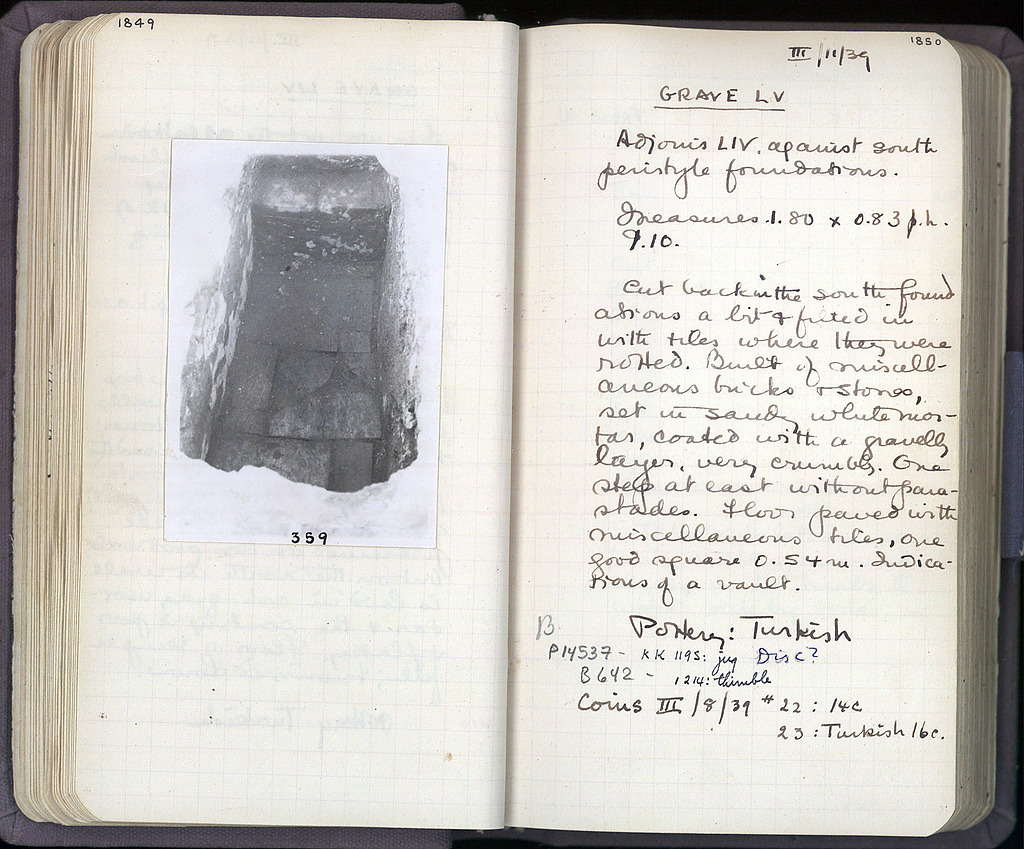 1849
359
1850
III/11/39
GRAVE LV
Adjoins LIV, against south
peristyle foundations.
Measures 1.80 x 0.83 p.h.
9.10.
Cut back in the south found
ations a bit & fitted in
with tiles where they were
rotted. Built of miscell-
aneous bricks & stones,
set in sandy white mor-
tar, coated with a gravelly
layer, very crumbly. One
step at east without para-
stades. Floor paved with
miscellaneous tiles, one
good square 0.54 m. Indica-
tions of a vault.
B
Pottery: Turkish
P14537 - KK 1195: jug Disc?
B 642 - 1214: thimble
Coins III/8/39 # 22: 14c
23: Turkish 16c.